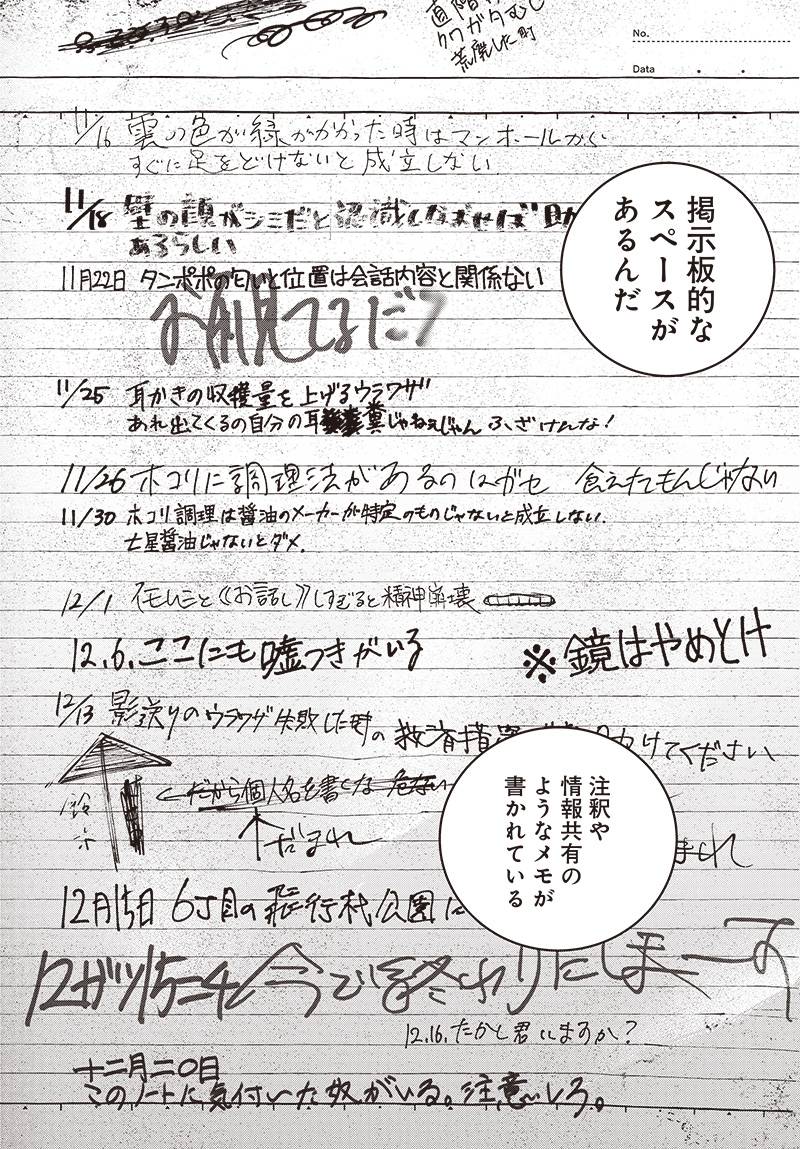 クワガタむし
荒廃した町
No.
Data
11/16 雲の色が緑がかかった時はマンホールから
すぐに足をどけないと成立しない
掲示板的な
スペースが
あるんだ
11/18 壁の顔がシミだと認識しなおせば 助
あるらしい
11月22日 タンポポの匂いと位置は会話内容と関係ない
お前見てるだろ
11/25 耳かきの収穫量を上げるウラワザ
あれ出てくるの自分の耳糞じゃねぇじゃん ふざけんな!
11/26 ホコリに調理法があるのはガセ 食えたもんじゃない
11/30 ホコリ調理は醤油のメーカーが特定のものじゃないと成立しない.
七星醤油じゃないとダメ.
12/1 イモムシと《お話し》しすぎると精神崩壊
12.6.ここにも嘘つきがいる
※鏡はやめとけ
12/13 影送りのウラワザ失敗した時の救済措置 助けてください
←だから個人名を書くな 危ない
↑だまれ
注釈や
情報共有の
ようなメモが
書かれている
12月15日 6丁目の飛行机公園に
今で終わりにしまーす
12.16.たかと君いますか?
十二月二〇日
このノートに気付いた奴がいる。注意しろ。